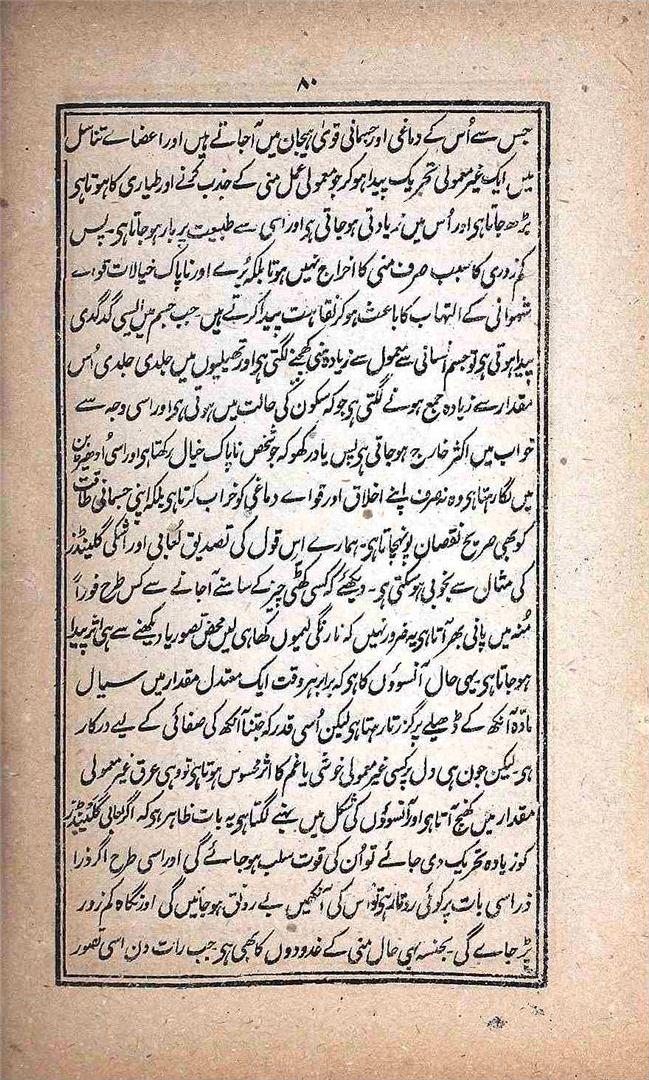 ۸۰
جس سے اُس کے دماغی اور جسمانی قویٰ ہیجان میں آجاتے ہیں اور اعضاے تناسل
میں ایک غیر معمولی تحریک پیدا ہو کر جو معمولی عمل منی کے جذب کرنے اور طیاری کا ہوتا ہی
بڑھ جاتا ہی اور اُس میں زیادتی ہو جاتی ہی اور اسی سے طبیعت پر بار ہو جاتا ہی۔ پس
کمزوری کا سبب صرف منی کا اخراج نہیں ہوتا بلکہ بُرے اور ناپاک خیالات قواے
شہوانی کے التہاب کا باعث ہو کر نقاہت پیدا کرتے ہیں۔ جب جسم میں ایسی گدگدی
پیدا ہوتی ہی تو جسم انسانی سے معمول سے زیادہ منی کھچنے لگتی ہی اور تھیلیوں میں جلدی جلدی اُس
مقدار سے زیادہ جمع ہونے لگتی ہی جو کہ سکون کی حالت میں ہوتی ہی اور اسی وجہ سے
خواب میں اکثر خارج ہو جاتی ہی پس یاد رکھو کہ جو شخص ناپاک خیال رکھتا ہی اور اسی اُدھیڑ بن
میں لگا رہتا ہی وہ نہ صرف اپنے اخلاق اور قواے دماغی کو خراب کرتا ہی بلکہ اپنی جسمانی طاقت
کو بھی صریح نقصان پونہچاتا ہی۔ ہمارے اس قول کی تصدیق لُعابی اور اشکی گلینڈز
کی مثال سے بخوبی ہو سکتی ہی۔ دیکھئے کہ کسی کھٹی چیز کے سامنے آجانے سے کس طرح فوراً
مُنہ میں پانی بھر آتا ہی یہ ضرور نہیں کہ نارنگی لیموں کھا ہی لیں محض تصور یا دیکھنے سے ہی اثر پیدا
ہو جاتا ہی۔ یہی حال آنسوؤں کا ہی کہ برابر ہر وقت ایک معتدل مقدار میں سیال
مادّہ آنکھ کے ڈھیلے پر گزرتا رہتا ہی لیکن اُسی قدر کہ جتنا آنکھ کی صفائی کے لیے درکار
ہی۔ لیکن جون ہی دل پر کسی غیر معمولی خوشی یا غم کا اثر محسوس ہوتا ہی تو وہی عرق غیر معمولی
مقدار میں کھنچ آتا ہی اور آنسوؤں کی شکل میں بہنے لگتا ہی یہ بات ظاہر ہی کہ اگر لعابی گلینڈز
کو زیادہ تحریک دی جائے تو اُن کی قوت سلب ہو جائے گی اور اسی طرح اگر ذرا
ذرا سی بات پر کوئی روتا رہی تو اُس کی آنکھیں بے رونق ہو جائیں گی اور نگاہ کمزور
پڑ جاے گی۔ بجنسہ یہی حال منی کے غدودوں کا بھی ہی۔ جب رات دن اسی تصور